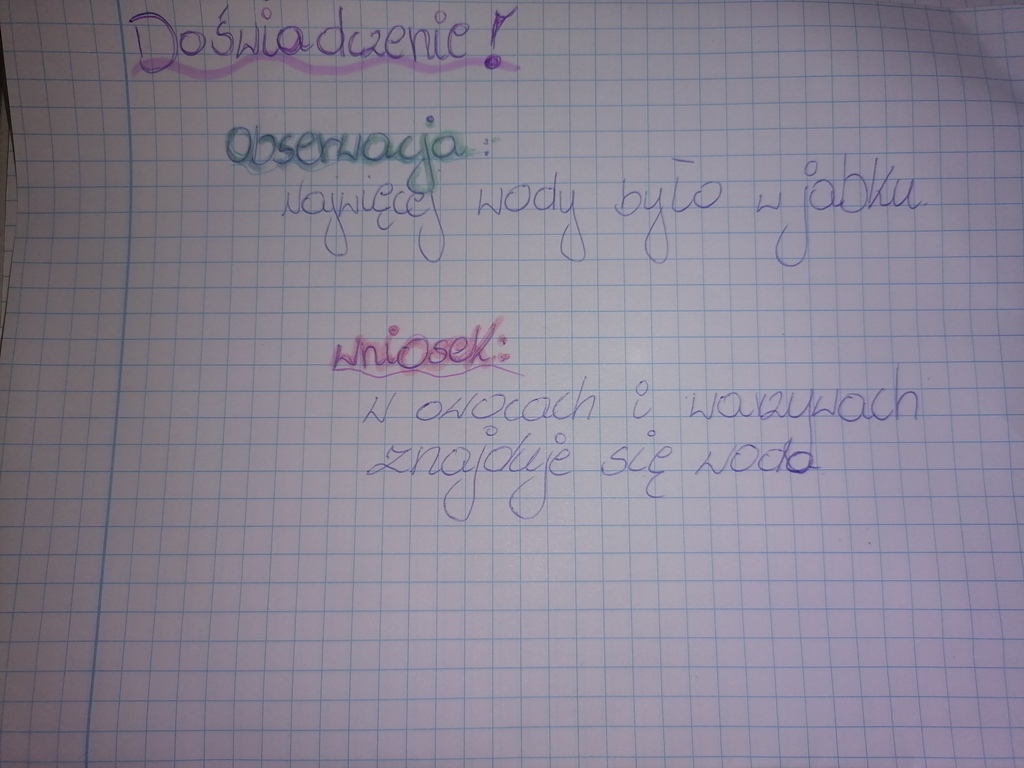 Doświadczenie!
Obserwacja:
Najwięcej wody było w jabku
wniosek:
w owocach i warzywach
znajduje się woda